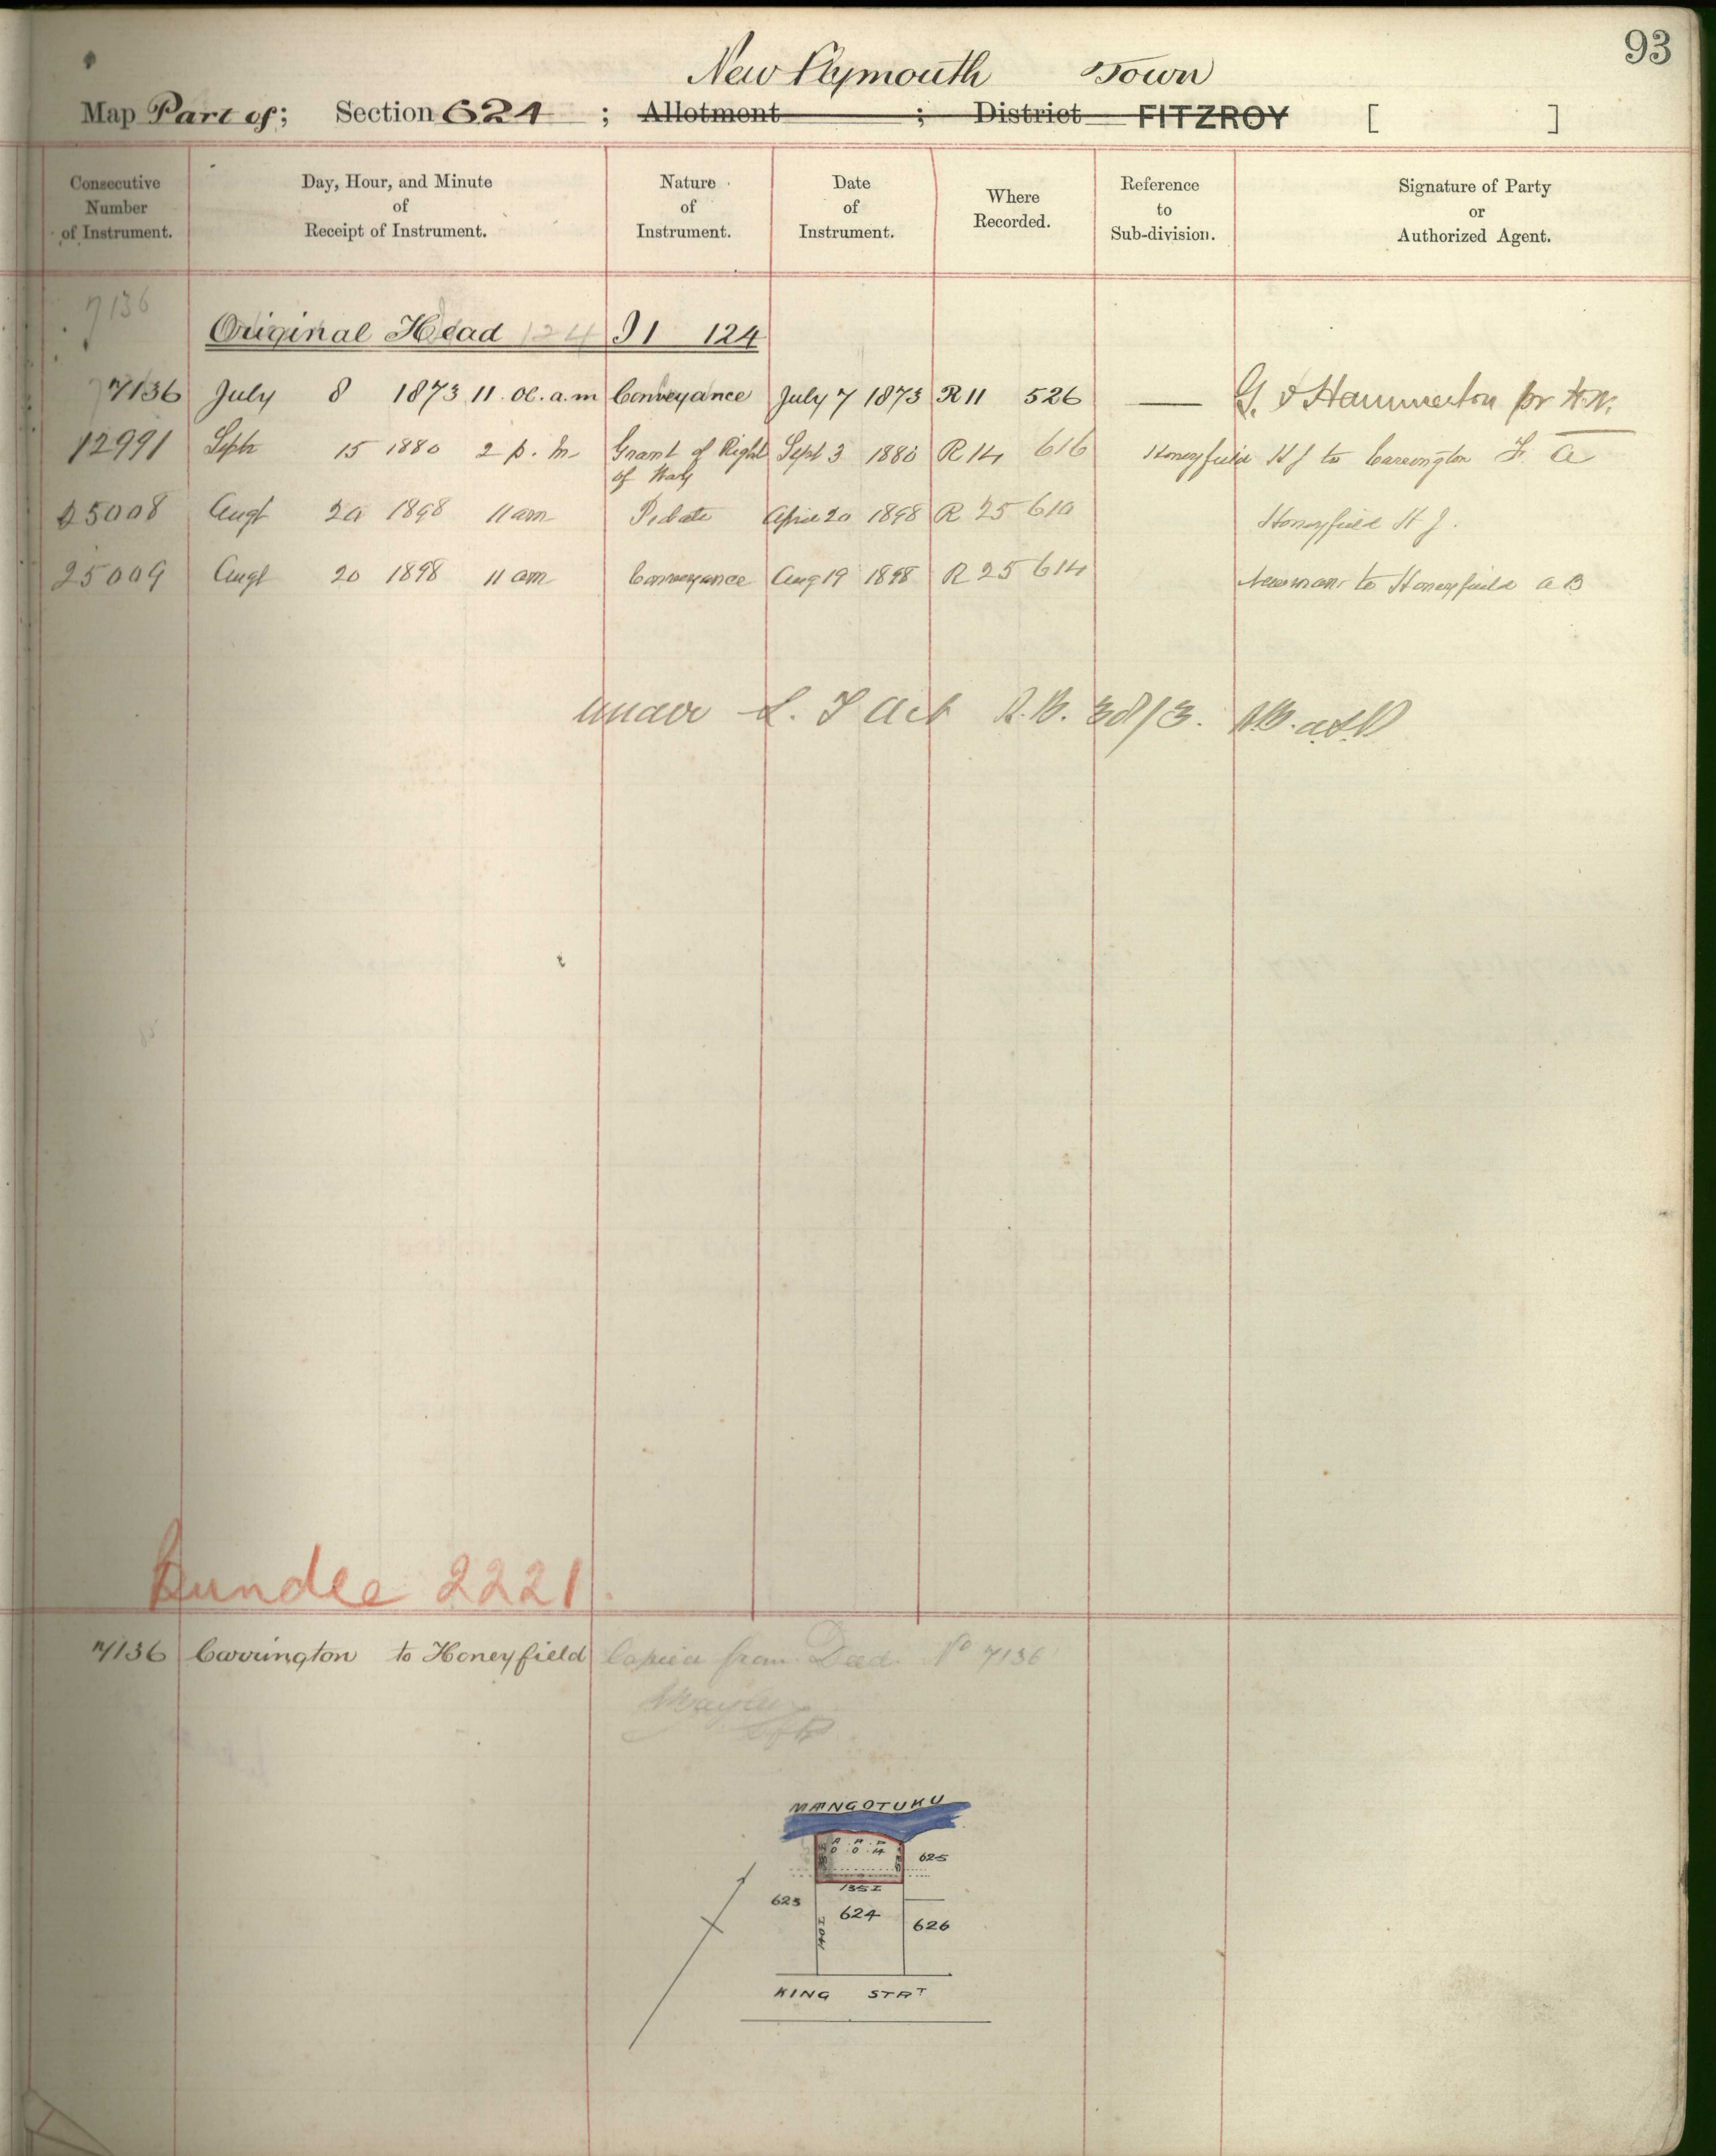 93
New Plymouth Town
Map Part of; Section 624 ; Allotment ; District FITZROY [ ]
Consecutive Number of Instrument.
Day, Hour, and Minute of Receipt of Instrument.
Nature of Instrument.
Date of Instrument.
Where Recorded.
Reference to Sub-division.
Signature of Party or Authorized Agent.
7136
Original Head 124 I1 124
7136 July 8 1873 11. Oc. a.m Conveyance July 7 1873 R11 526 — G. v Hammerton for H.W.
12991 Septr 15 1880 2 p.m Grant of Right of Way Sept 3 1880 R 14 616 Honeyfield H J to Carrington F. A
25008 Augt 20 1898 11 am Probate April 20 1898 R 25 610 Honeyfield H J.
25009 Augt 20 1898 11 am Conveyance Aug 19 1898 R 25 614 Newman to Honeyfield A B
under L. T Act
Bundle 2221.
7136 Carrington to Honeyfield Copied from Deed No 7136
MANGOTUKU
625
1352
623
624
626
KING STRT